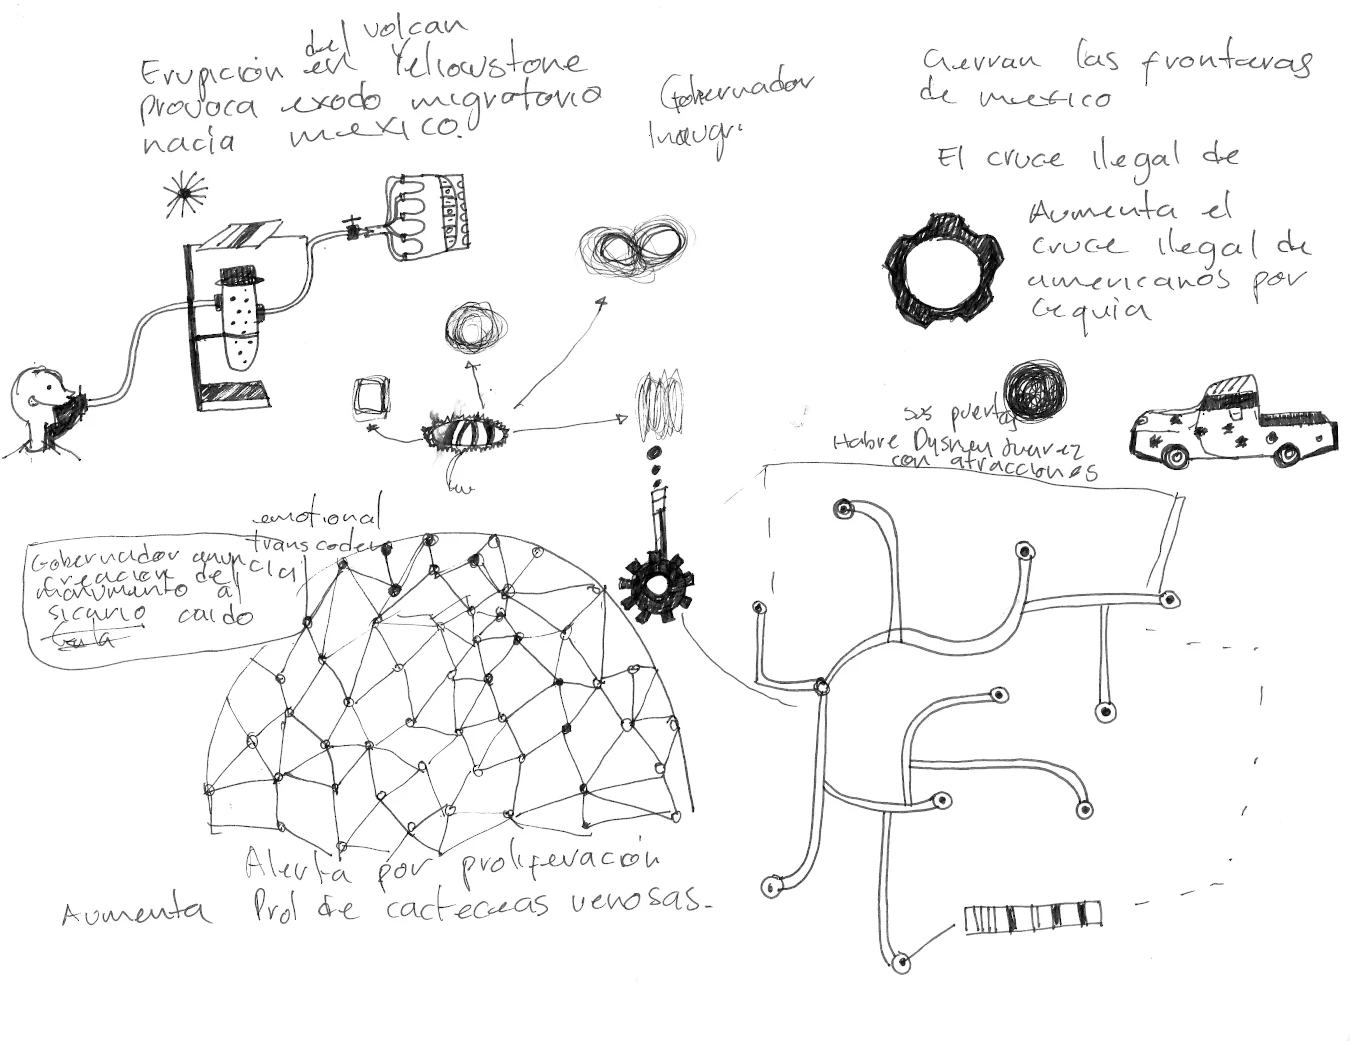 del volcan
Erupción en Yellowstone
provoca exodo migratorio
hacia mexico.
Gobernador
Inaugr.
Cierran las fronteras
de mexico
El cruce ilegal de
Aumenta el
cruce ilegal de
americanos por
sus puertas
Habre Dysney Juarez
con atracciones
emotional
transcoder
Gobernador anuncia
creacion del
monumento al
sicario caido
Alerta por proliferación
Aumenta Prol de cacteceas venosas.